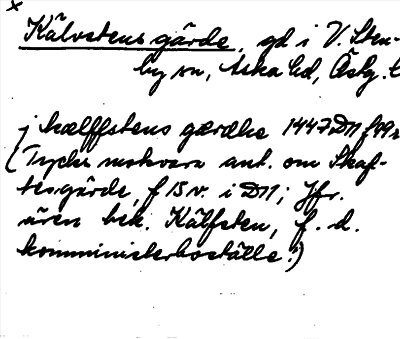 x
Kälvstens gärde, gd i V. Sten-
by sn, Aska hd, Östg. l
j kælffstens gærdhe 1447 D11 f99r
(Tycks motsvara ant. om Skaf-
tesgärde, f 15 v. i D11; Jfr.
även bek. Kälfsten, f. d.
komministerboställe!)